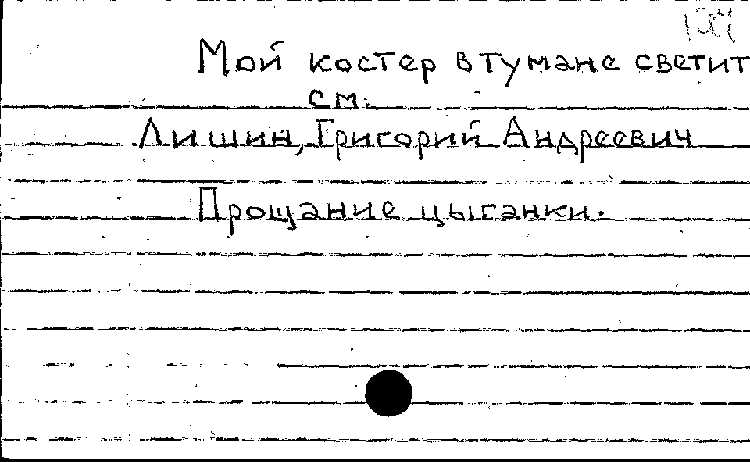 Мой костер в тумане светит
см.
Лишин, Григорий Андреевич
Прощание цыганки.